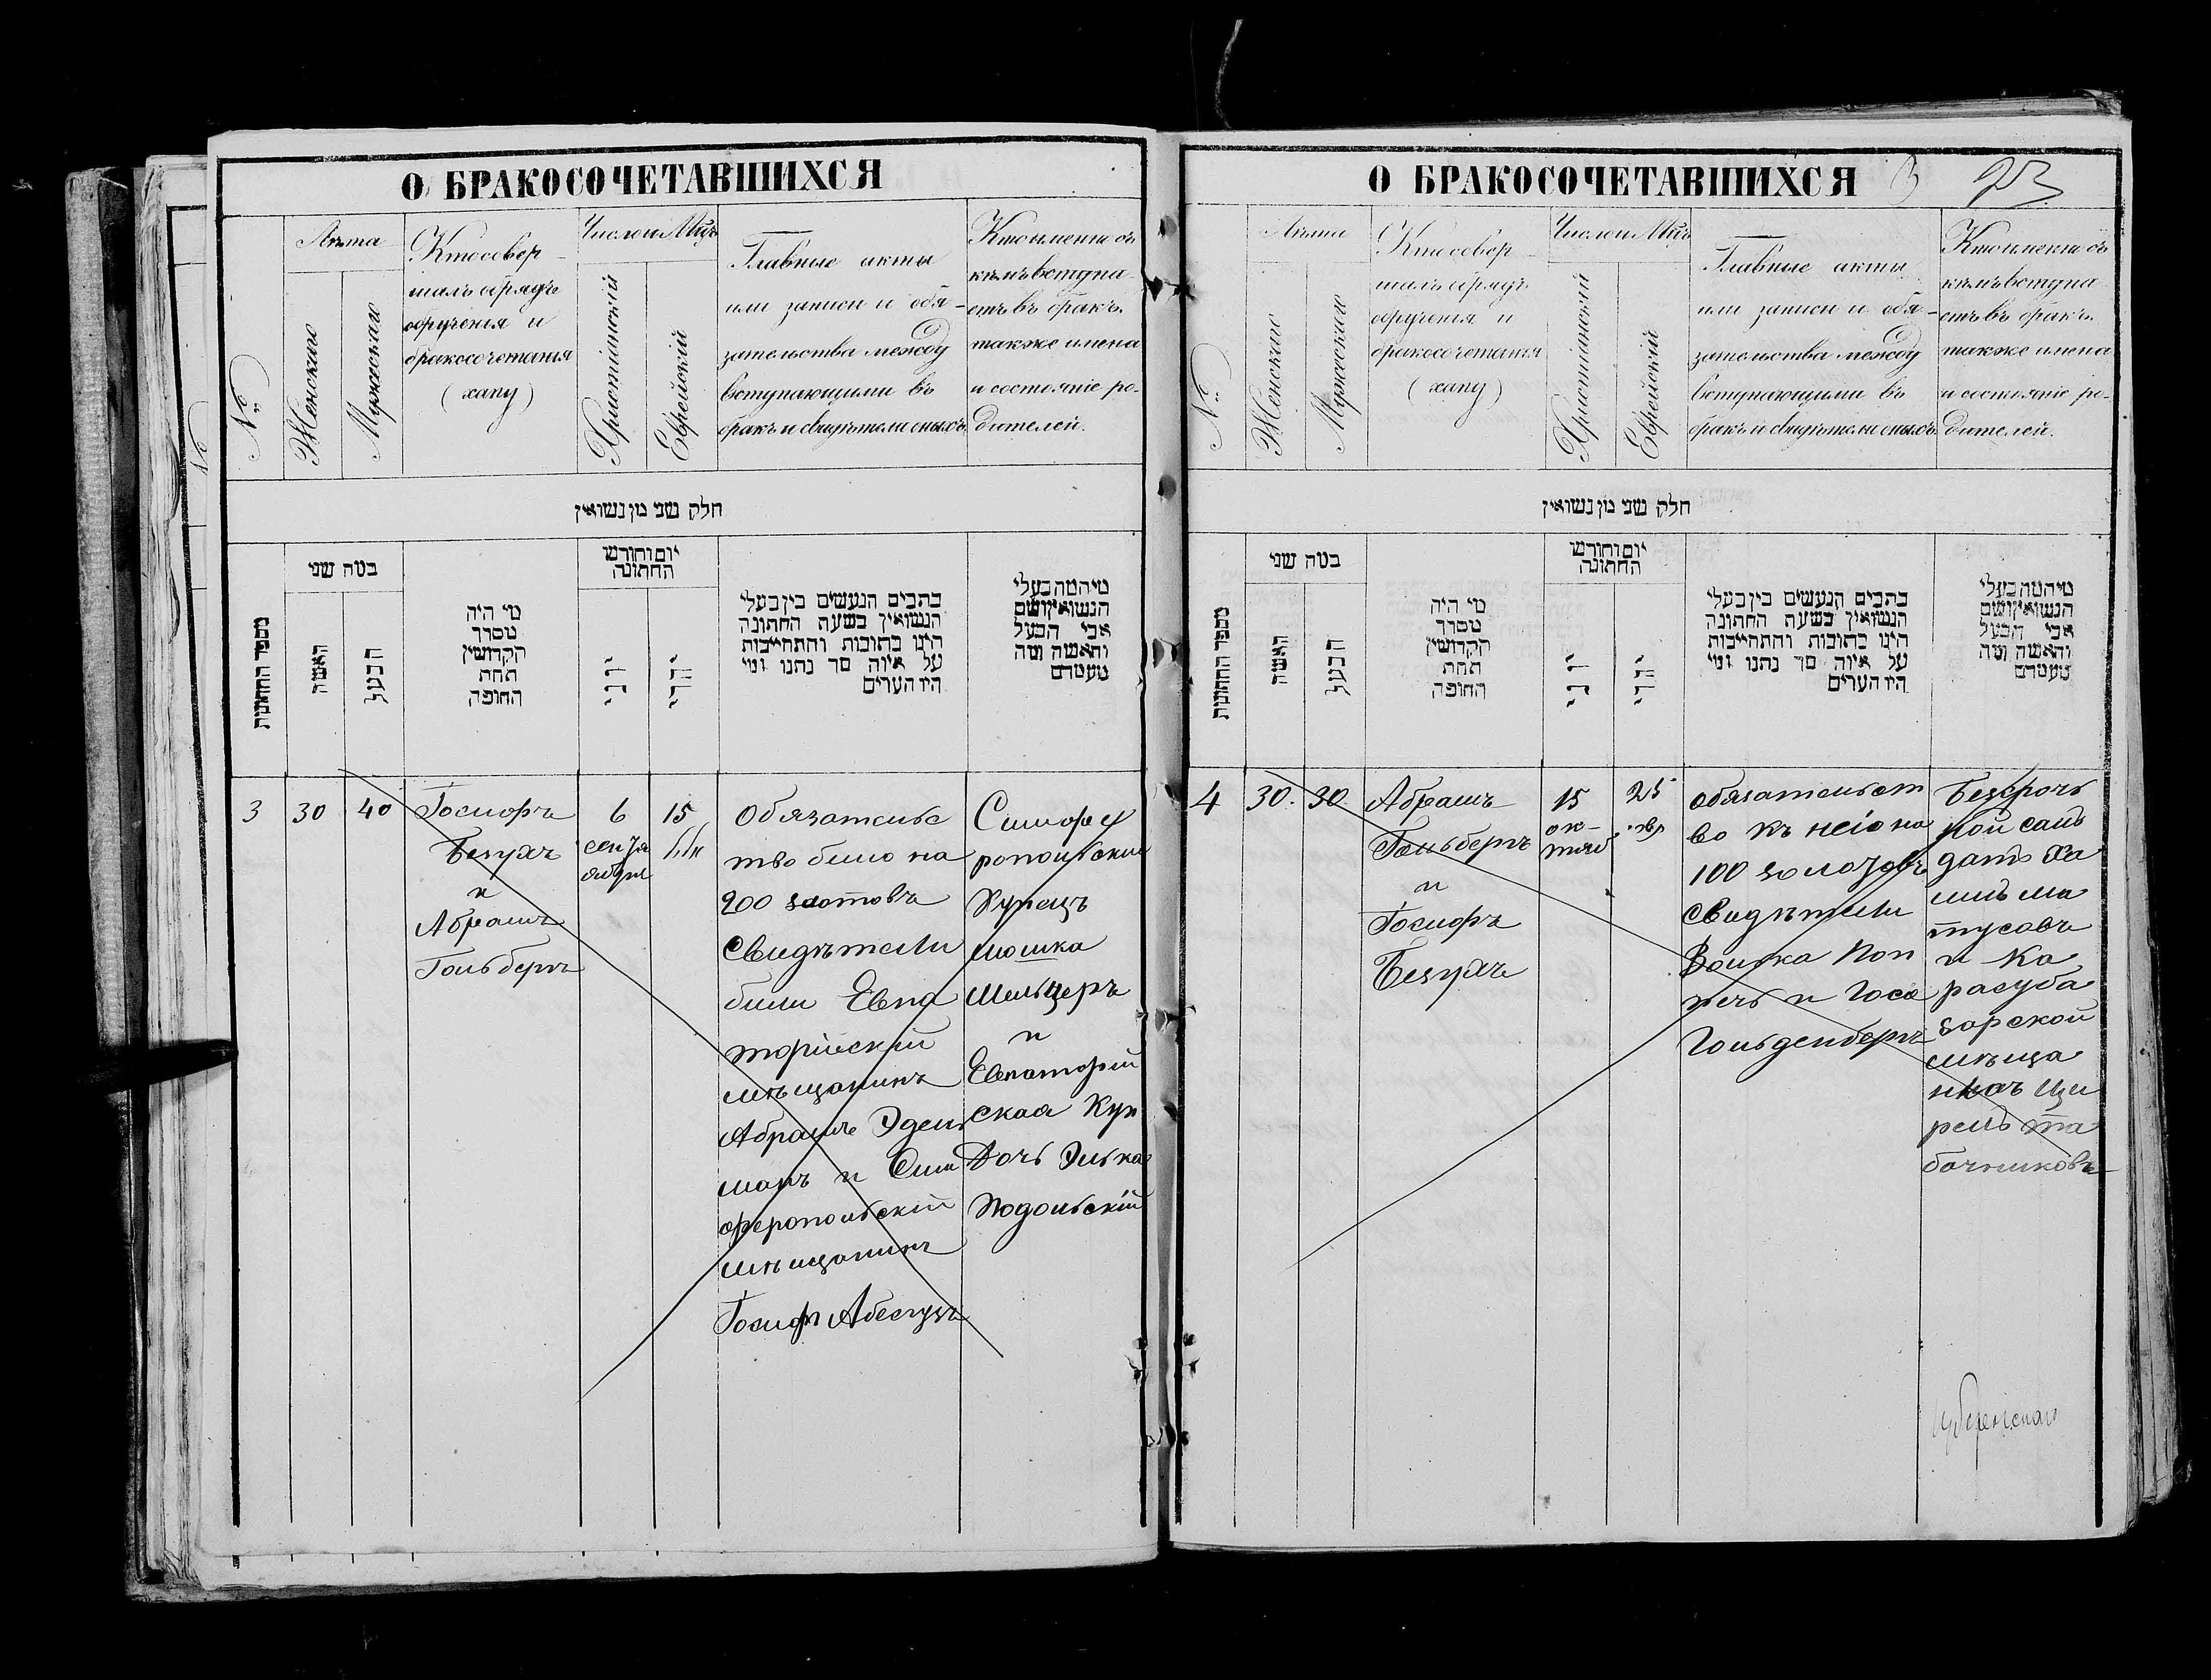 О БРАКОСОЧЕТАВШИХСЯ
№
Лѣта
Женскаго
Мужескаго
Кто совер-
шалъ обрядъ
обрученія и
бракосочетанія
(хапу)
Число и Мцъ
Христіанскій
Еврейскій
Главные акты
или записи и обя-
зательства между
вступающими въ
бракъ и свидѣтели оныхъ
Кто именно съ
кѣмъ вступа-
етъ въ бракъ
также имена
и состояніе ро-
дителей.
חלק שני מן נשואין
מספר החתונות
כמה שני
האשה
הבעל
מי היה
מסדר
הקדושין
תחת
החופה
יום וחורש
החתונה
יוני
יהודי
כתבים הנעשים בין בעלי
הנשואין בשעת החתונה
היינו כתובות והתחייבות
על איזה סך נתנו ומי
היו העדים
מי המה בעלי
הנשואין ושם
אבי הבעל
והאשה ומה
מעמדם
3
30
40
Іосифъ
Безухъ
и
Абрамъ
Гольберъ
6
сентя
15
Обязательс
тво било на
200 злотовъ
Свидѣтели
били Евпа
торійскій
мѣщанинъ
Абрамъ Эдель
манъ и Сим
феропольскій
мѣщанинъ
Іосифъ
Симфер
ропольскій
Купецъ
Мошка
Мельцеръ
и
Евпаторій
ская Куп
Дочь Элька
Подольскій
О БРАКОСОЧЕТАВШИХСЯ
23
№
Лѣта
Женскаго
Мужескаго
Кто совер-
шалъ обрядъ
обрученія и
бракосочетанія
(хапу)
Число и Мцъ
Христіанскій
Еврейскій
Главные акты
или записи и обя-
зательства между
вступающими въ
бракъ и свидѣтели оныхъ
Кто именно съ
кѣмъ вступа-
етъ въ бракъ
также имена
и состояніе ро-
дителей.
חלק שני מן נשואין
מספר החתונות
כמה שני
האשה
הבעל
מי היה
מסדר
הקדושין
תחת
החופה
יום וחורש
החתונה
יוני
יהודי
כתבים הנעשים בין בעלי
הנשואין בשעת החתונה
היינו כתובות והתחייבות
על איזה סך נתנו ומי
היו העדים
מי המה בעלי
הנשואין ושם
אבי הבעל
והאשה ומה
מעמדם
4
30.
30.
Абрамъ
Гольберъ
и
Іосифъ
Безухъ
15
ок-
тяб
25
обязательст
во къ ней на
100 золотовъ
Свидѣтели
Волька
и Іосе
Гольденберъ
Безсроч
ной сал
датъ Ха
имъ Ма
тусовъ
и Ка
расуба
зарской
мѣща
Ци
рель Та
бачниковъ